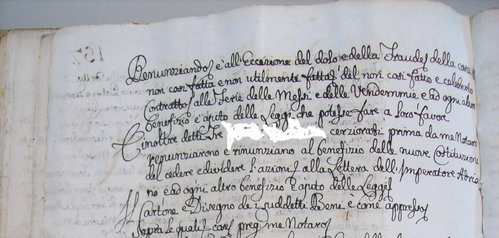 Renunziando è all'Eccezione del dolo e della fraude, della cosa
non così fatta e non utilmente fatta, del non così fatto e celebrato
Contratto alle Ferie delle Messi e delle Vendemmie, ed ogni altro
benefizio e aiuto delle Leggi che potesse fare a loro favore
E inoltre dette Tre cerziorati prima da me Notaro
renunziarono e rinunziano al benefizio delle nuove costituzioni
del cedere e dividere l'azioni, alla Lettera dell'Imperatore Adria
no ed ogni altro benefizio e aiuto delle Leggi
Il Cartone e Disegno de suddetti Beni e come appresso
sopra le quali cose pregò me Notaro